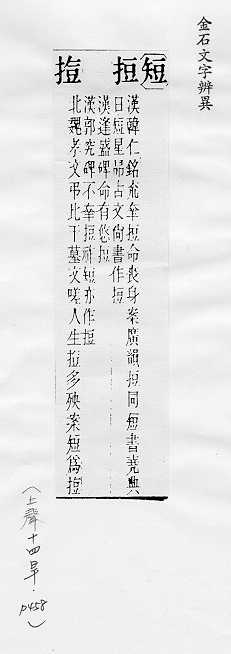 金石文字辨異
短
拒
漢韓仁銘充牟拒命喪身案廣韻拒同短書堯典
日短星昴古文尚書作拒
漢逢盛碑命有悠拒
漢郭究碑不幸拒祚短亦作拒
北魏孝文弔比干墓文嗟人生㨖多殃案短爲㨖
(上聲十四旱.p458)